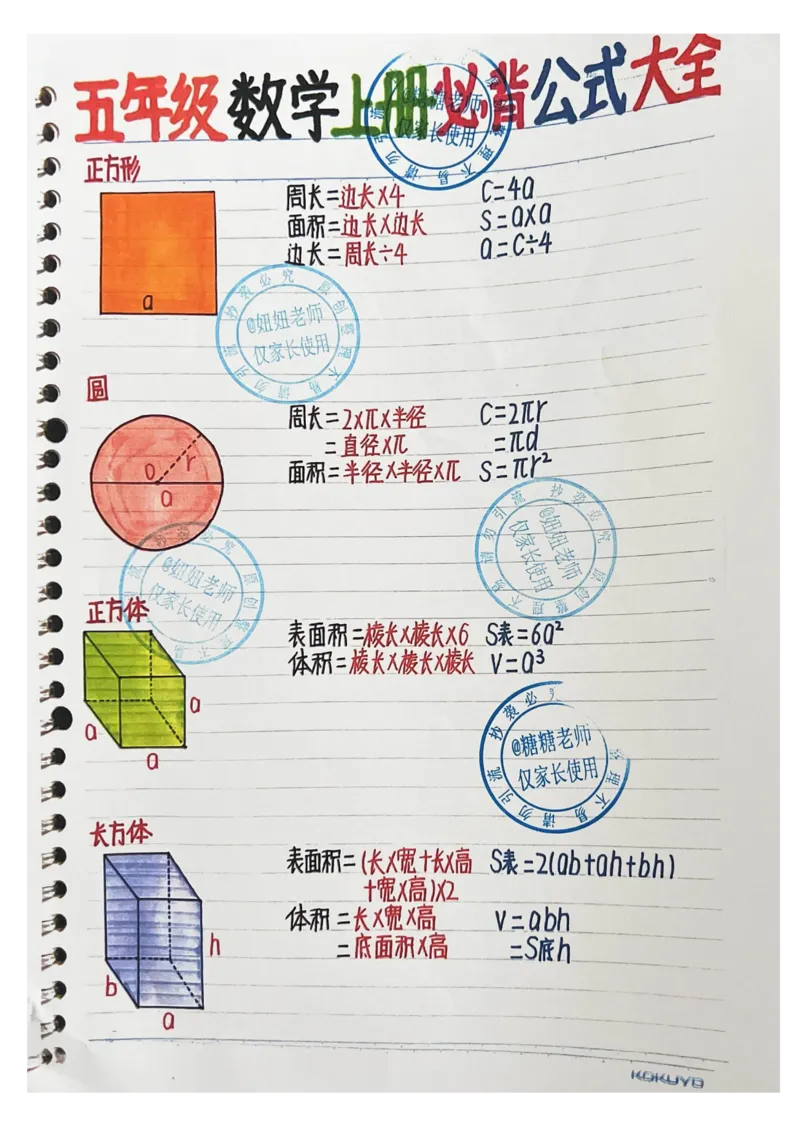 五年级数学上册必背公式大全
正方形
周长=边长×4 C=4a
面积=边长×边长 S=a×a
边长=周长÷4 a=C÷4
a
@妞妞老师
仅家长使用
圆
周长=2×π×半径 C=2πr
=直径×π =πd
面积=半径×半径×π S=πr²
o r
a
@妞妞老师
仅家长使用
@妞妞老师
仅家长使用
正方体
表面积=棱长×棱长×6 S表=6a²
体积=棱长×棱长×棱长 V=a³
a
a
a
@糖糖老师
仅家长使用
长方体
表面积=(长×宽+长×高 S表=2(ab+ah+bh)
+宽×高)×2
体积=长×宽×高 V=abh
=底面积×高 =S底h
h
b
a
KOKUYO